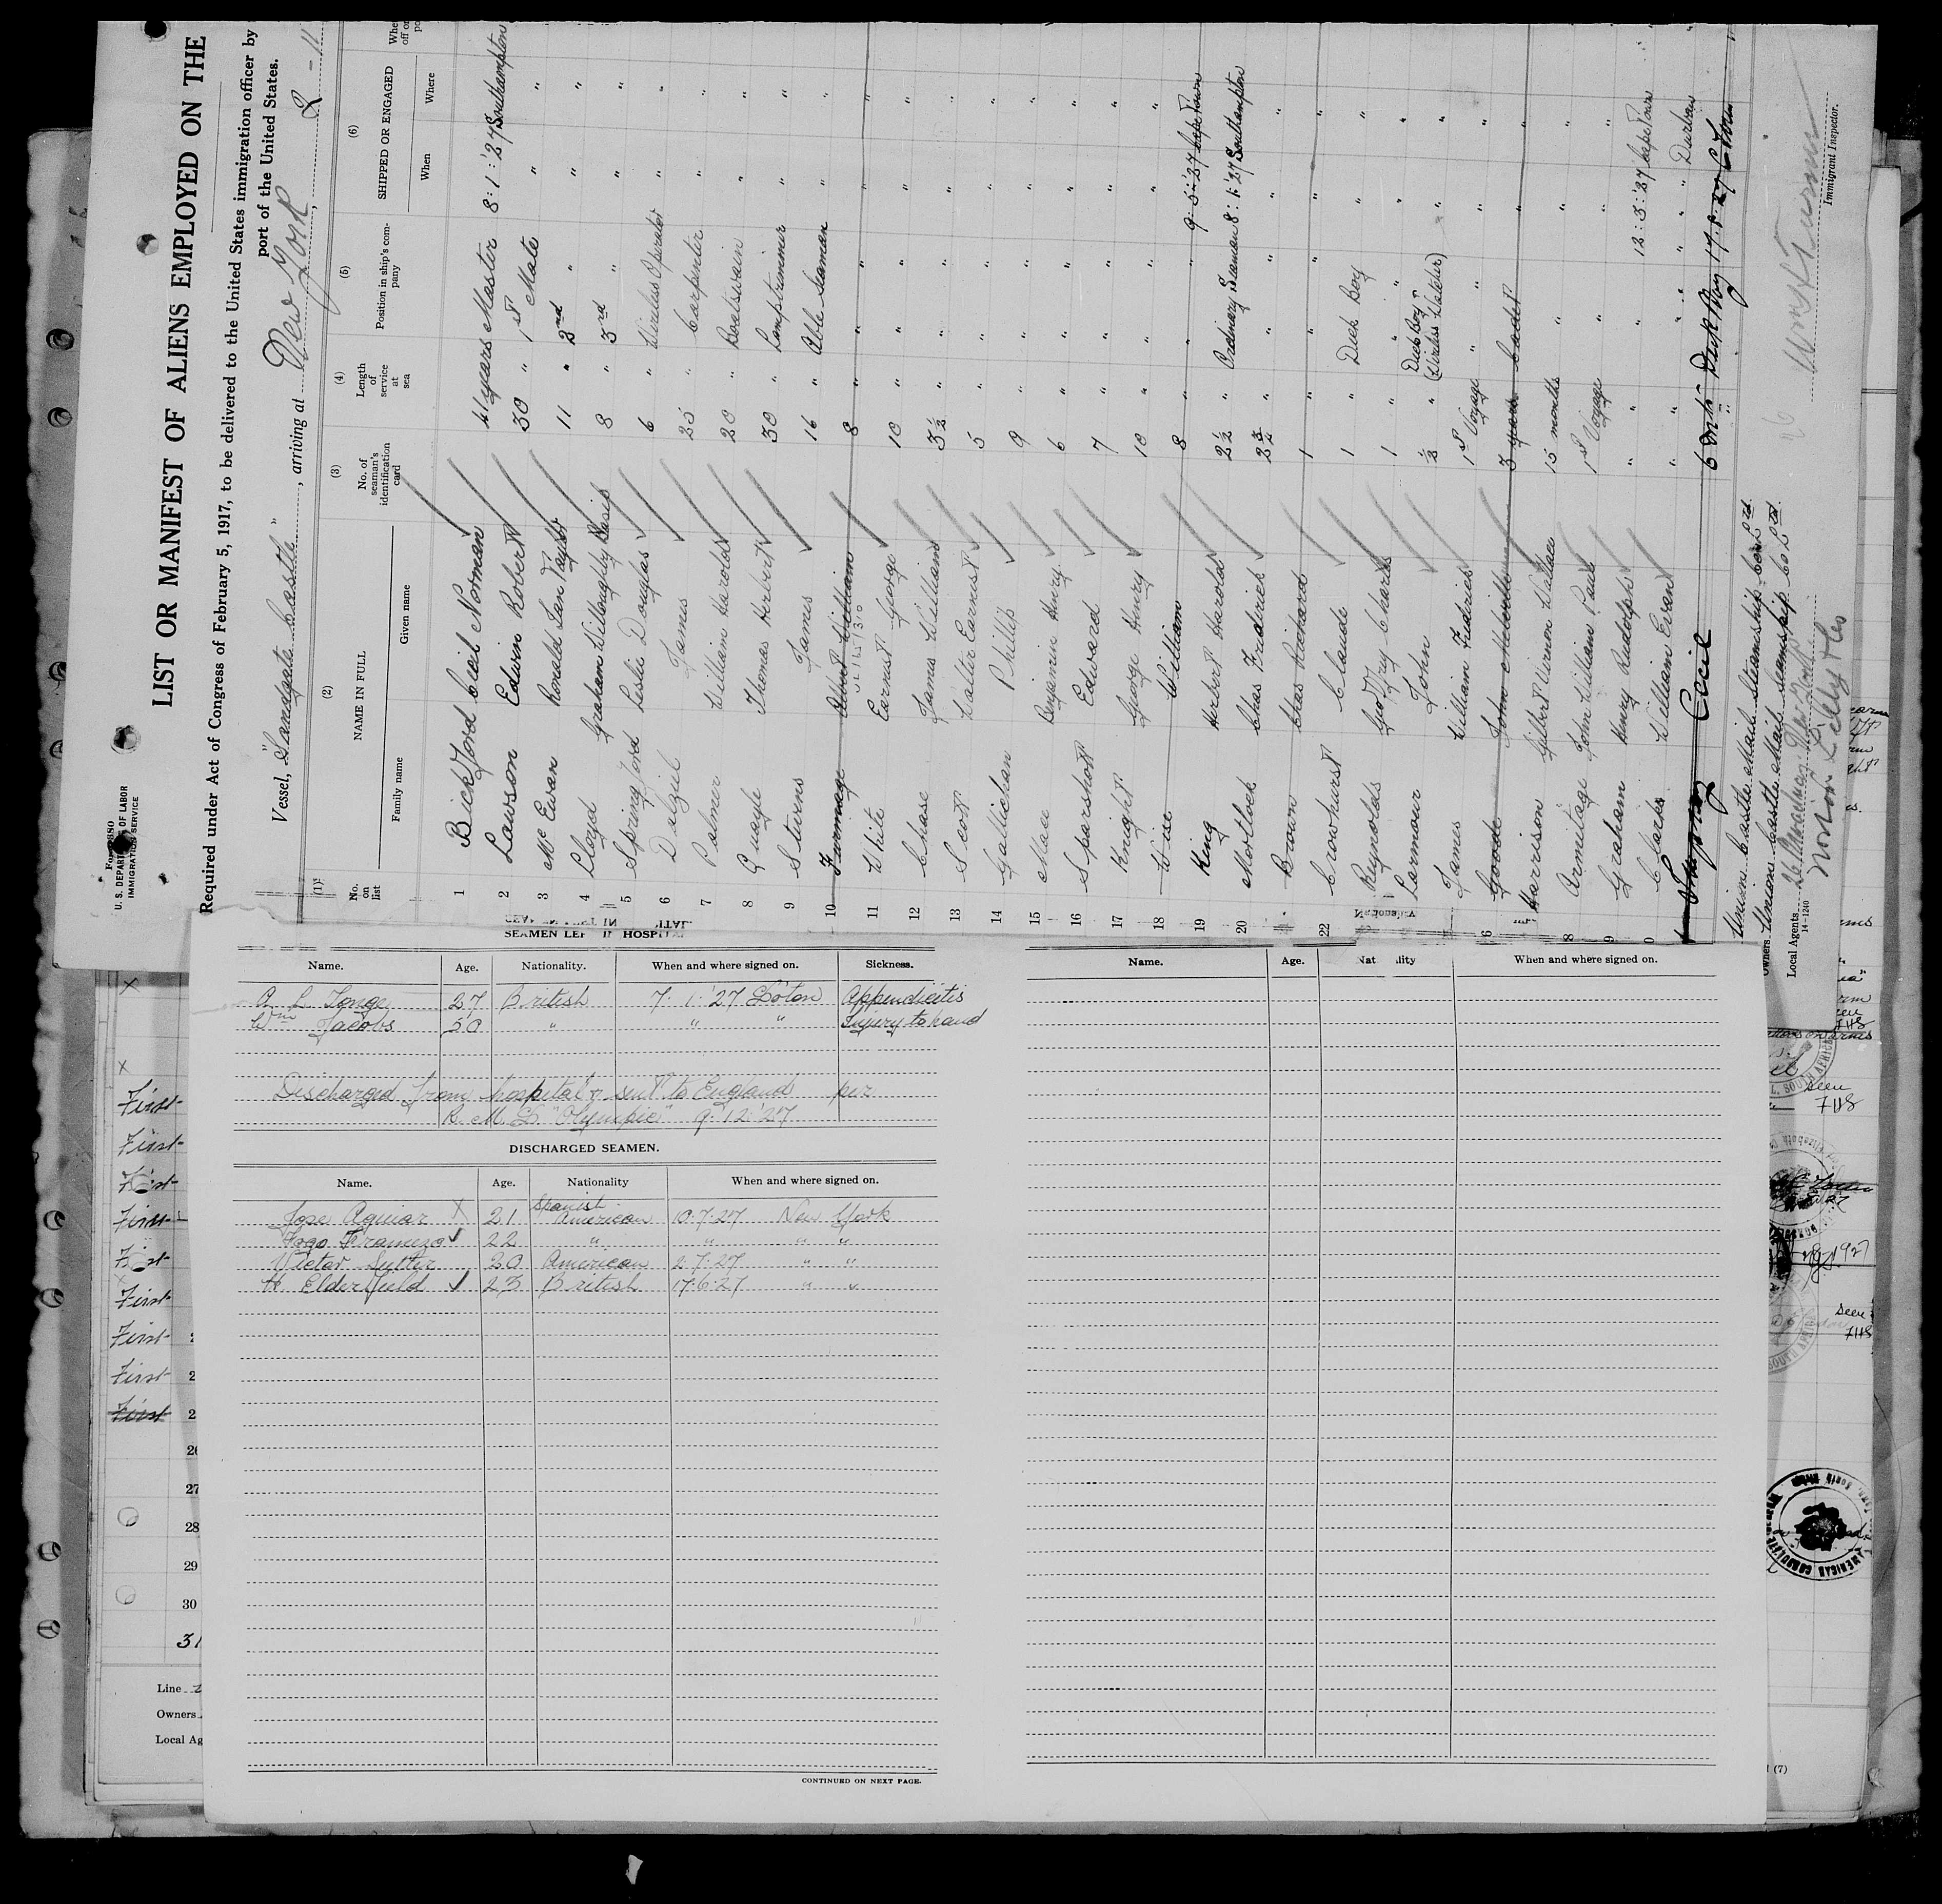 Form 680
U. S. DEPARTMENT OF LABOR
IMMIGRATION SERVICE
LIST OR MANIFEST OF ALIENS EMPLOYED ON THE
Required under Act of Congress of February 5, 1917, to be delivered to the United States immigration officer by
port of the United States.
Vessel, "Sandgate Castle", arriving at New York
(1) (2) (3) (4) (5) (6)
No. on list NAME IN FULL No. of seaman's identification card Length of service at sea Position in ship's company SHIPPED OR ENGAGED
Family name Given name When Where
1 Bickford Cecil Norman 41 years Master 8:1:27 Southampton
2 Lawson Edwin Robert 30 " 1st Mate " "
3 McEwan Ronald Ian Taylor 11 " 2nd " " "
4 Lloyd Graham Willoughby Basil 8 " 3rd " " "
5 Springford Leslie Douglas 6 " Wireless Operator " "
6 Dalziel James 25 " Carpenter " "
7 Palmer William Harold 20 " Boatswain " "
8 Quayle Thomas Herbert 30 " Lamptrimmer " "
9 Stevens James 16 " Able Seaman " "
10 Turmage Albert William 8 " " " "
11 White Earnest George 10 " " " "
12 Chase James William 3½ " " " "
13 Scott Walter Earnest 5 " " " "
14 Gallichan Phillip 9 " " " "
15 Mace Benjamin Henry 6 " " " "
16 Sparshott Edward 7 " " " "
17 Knight George Henry 10 " " " "
18 Wise William 8 " " 9:5:27 Cape Town
19 King Herbert Harold 2½ " Ordinary Seaman 8:1:27 Southampton
20 Mortlock Chas Fredrick 2¾ " " " "
Brown Chas Richard 1 " " " "
22 Crowhurst Claude 1 " Deck Boy " "
Reynolds Geoffry Charles 1 " " " "
Parmour John ½ " Deck Boy (Wireless Watcher) " "
James William Fredrick 1st Voyage " " "
6 Goode John Melville 3 years Cadet " "
Harrison Gilbert Vernon Wallace 15 months " " "
8 Armitage John William Paul 1st Voyage " " "
9 Graham Henry Rudolph " " 12:3:27 Cape Town
0 Clarke William Evan " " " Durban
Cecil 6 mths Deck Boy 17.8.27
Union Castle Mail Steamship Co Ltd
Owners Union Castle Mail Steamship Co Ltd
Local Agents
14-1240
Norton Lilly & Co
Immigrant Inspector.
SEAMEN LEFT IN HOSPITAL
Name. Age. Nationality. When and where signed on. Sickness.
A. L. Tonge 27 British 7.1.'27 So'ton Appendicitis
Wm Jacobs 50 " " " Injury to hand
Discharged from hospital & sent to England per
R. M. S. "Olympic" 9:12:27
DISCHARGED SEAMEN.
Name. Age. Nationality When and where signed on.
Jose Aguiar X 21 Spanish American 10.7.27 New York
22 " " " "
Victor Sutter 30 American 2.7.27 " "
H Elderfield 23 British 17.6.27 " "
CONTINUED ON NEXT PAGE.
Name. Age. Nationality When and where signed on.
First
First
First
First
First
First
First
First
First
26
27
28
29
30
31
Line
Owners
Local Ag
seen
7HS
seen
7HS
(7)